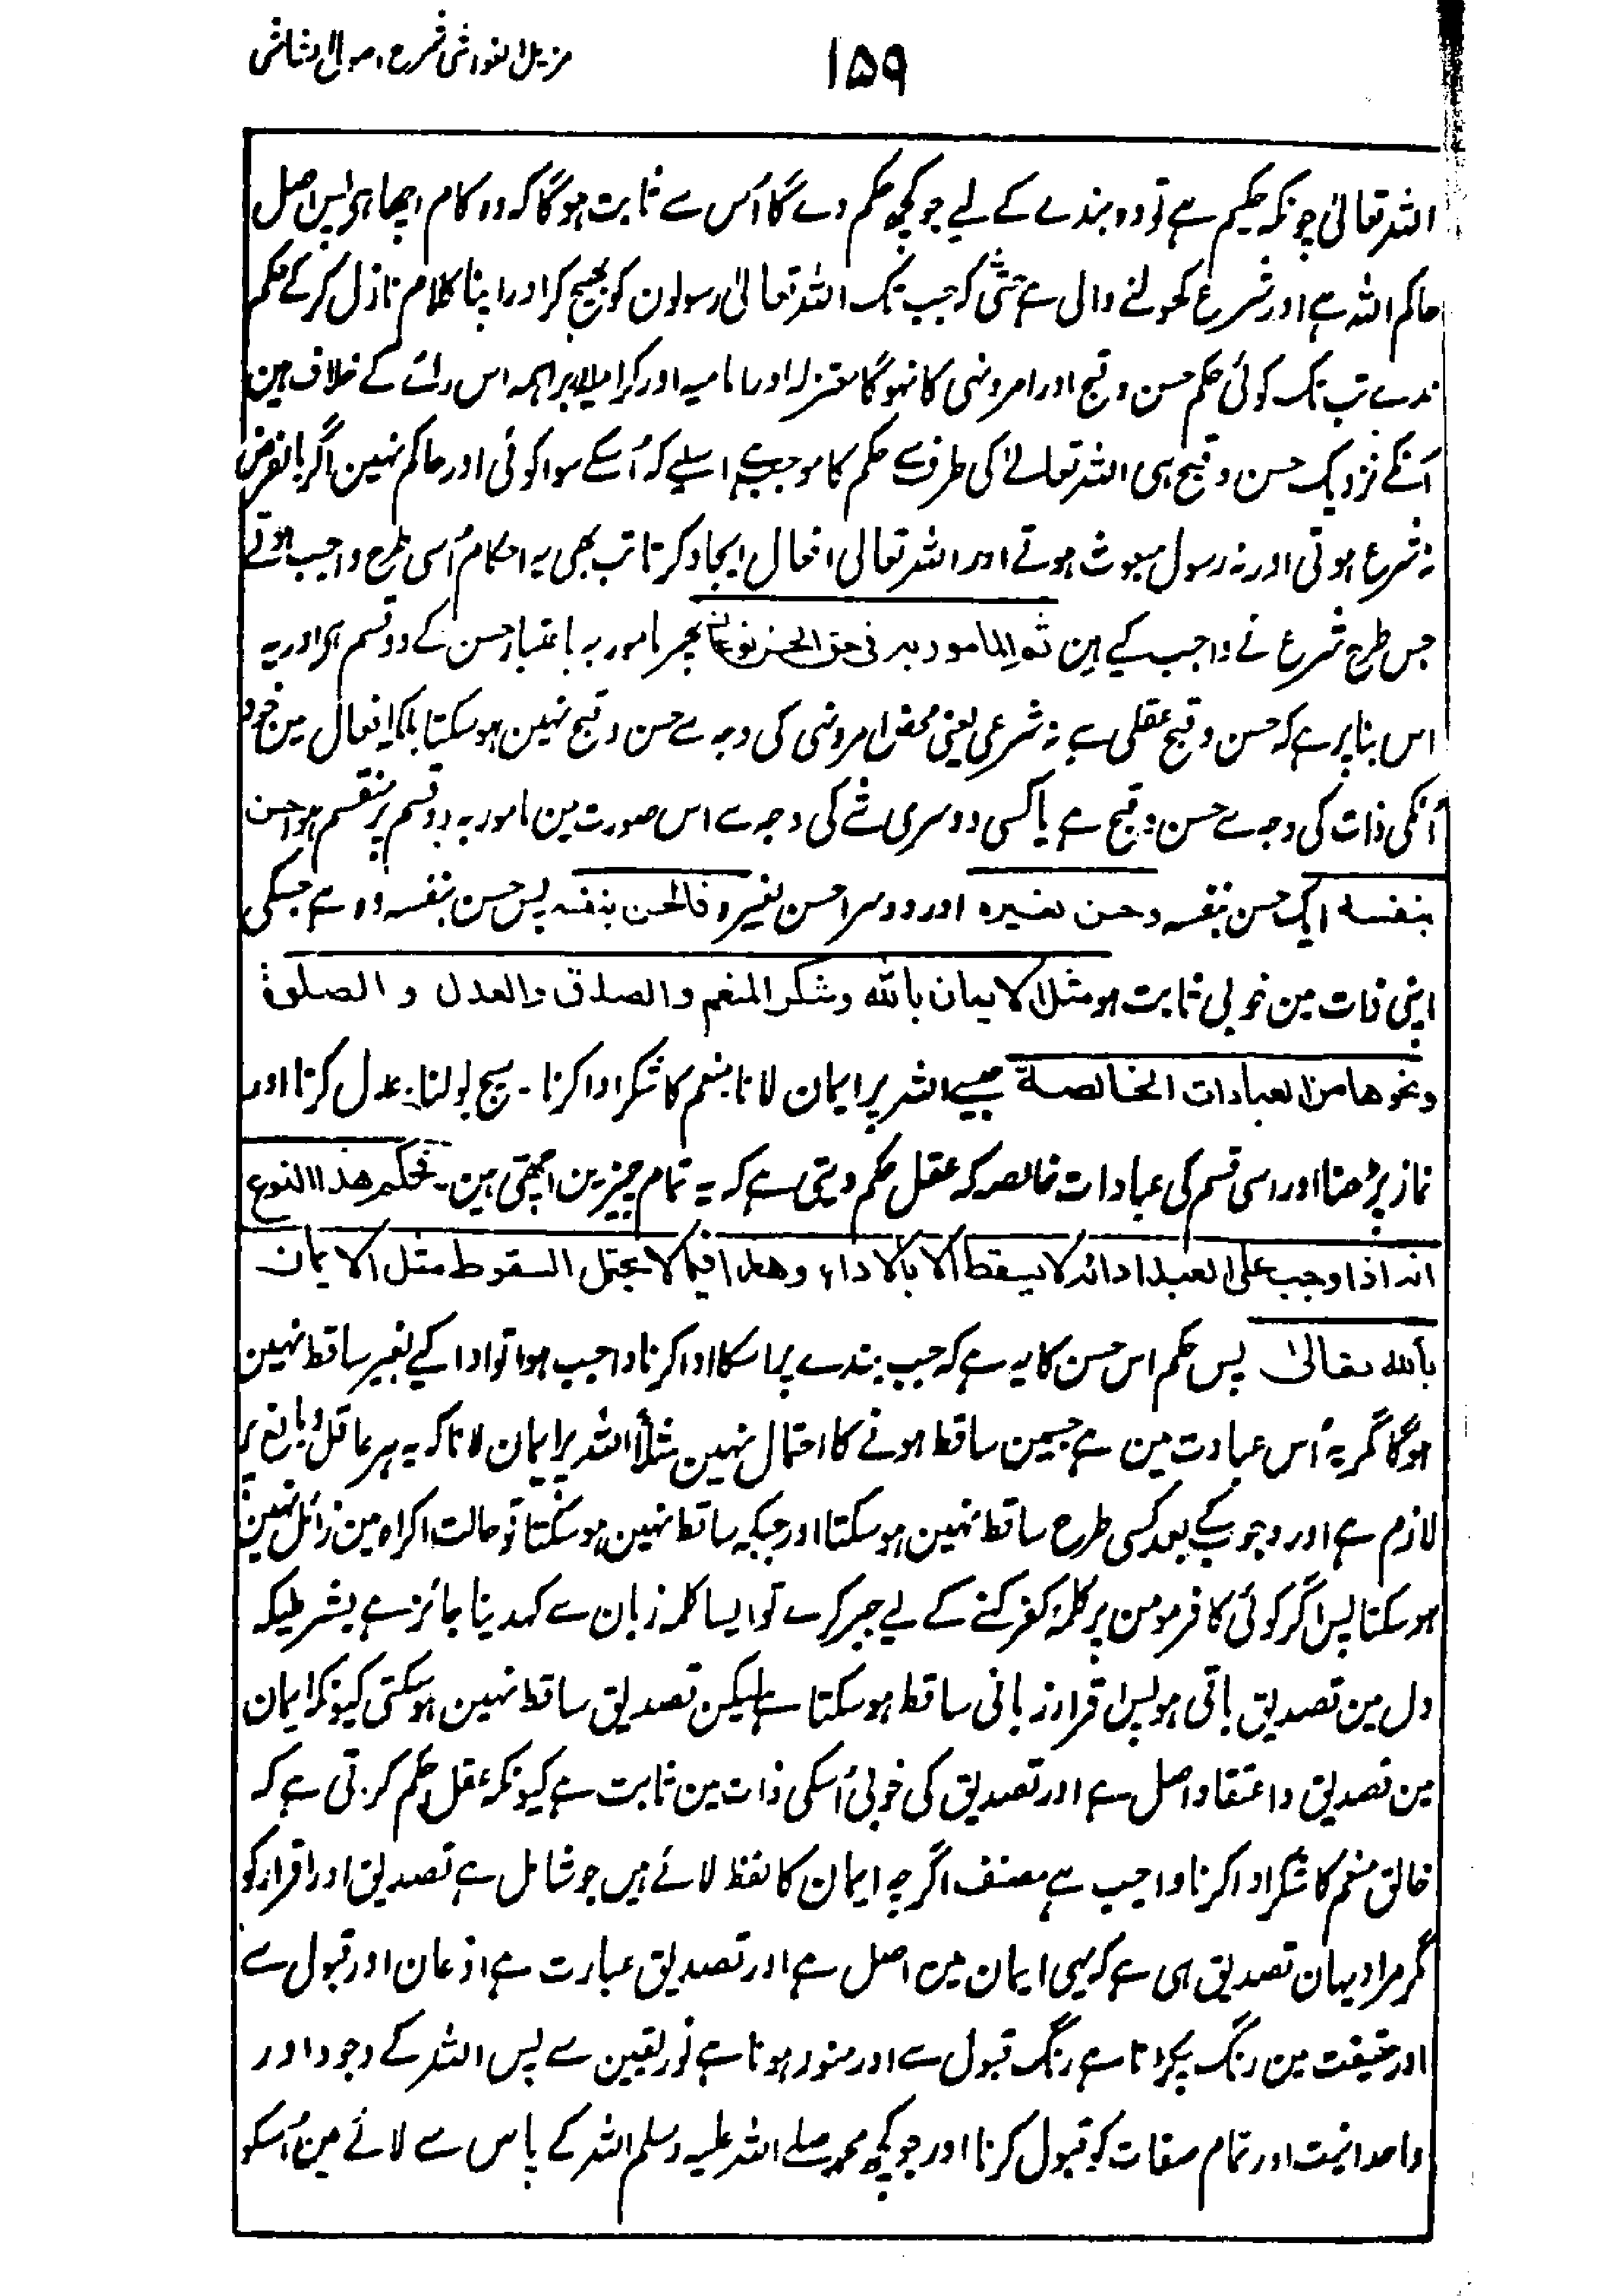 مزیل الغواشی شرح اصول الشاشی
۱۵۹
اللہ تعالیٰ چونکہ حکیم ہے تو وہ بندے کے لیے جو کچھ حکم دے گا اُس سے ثابت ہوگا کہ وہ کام اچھا ہی پس اصل
حاکم اللہ ہے اور شرع کھولنے والی ہے حتیٰ کہ جب تک اللہ تعالیٰ رسولون کو بھیج کر اور اپنا کلام نازل کر کے حکم
ندے تب تک کوئی حکم حسن و قبح اور امر و نہی کا نہوگا معتزلہ اور امامیہ اور کرامیہ اور براہمہ اس رائے کے خلاف ہین
اُنکے نزدیک حسن و قبح ہی اللہ تعالےٰ کی طرف سے حکم کا موجب ہے اسلیے کہ اُسکے سوا کوئی اور حاکم نہین اگر بالفرض
نہ شرع ہوتی اور نہ رسول مبعوث ہوتے اور اللہ تعالی افعال ایجاد کرتا تب بھی یہ احکام اُسی طرح واجب ہوتے
جس طرح شرع نے واجب کیے ہین ثم المامور بہ فی حق الحسن نوعان پھر مامور بہ باعتبار حسن کے دو قسم ہی اور یہ
اس بنا پر ہے کہ حسن و قبح عقلی ہے نہ شرعی یعنی محض امر و نہی کی وجہ سے حسن و قبح نہین ہو سکتا بلکہ افعال مین خود
اُنکی ذات کی وجہ سے حسن و قبح ہے یا کسی دوسری شے کی وجہ سے اس صورت مین مامور بہ دو قسم پر منقسم ہوا حسن
بنفسہ ایک حسن بنفسہ و حسن لغیرہ اور دوسرا حسن لغیرہ فالحسن بنفسہ پس حسن بنفسہ وہ ہے جسکی
اپنی ذات مین خوبی ثابت ہو مثل الایمان باللہ وشکر المنعم والصدق والعدل و الصلوۃ
ونحوھا من العبادات الخالصۃ جیسے اللہ پر ایمان لانا منعم کا شکر ادا کرنا۔ سچ بولنا۔ عدل کرنا اور
نماز پڑھنا اور اسی قسم کی عبادات خالصہ کہ عقل حکم دیتی ہے کہ یہ تمام چیزین اچھی ہین۔ فحکم ھذا النوع
انہ اذا وجب علی العبد ادائہ لا یسقط الا بالاداء وھذا فیما لا یحتمل السقوط مثل الایمان
باللہ تعالیٰ پس حکم اس حسن کا یہ ہے کہ جب بندے پر اسکا ادا کرنا واجب ہوا تو ادا کیے بغیر ساقط نہین
ہوگا مگر یہ اُس عبادت مین ہے جسمین ساقط ہونے کا احتمال نہین مثلاً اللہ پر ایمان لانا کہ یہ ہر عاقل و بالغ پر
لازم ہے اور وجوب کے بعد کسی طرح ساقط نہین ہو سکتا اور جبکہ ساقط نہین ہو سکتا تو حالت اکراہ مین زائل نہین
ہو سکتا پس اگر کوئی کافر مومن پر کلمۂ کفر کہنے کے لیے جبر کرے تو ایسا کلمہ زبان سے کہدینا جائز ہے بشرطیکہ
دل مین تصدیق باقی ہو پس اقرار زبانی ساقط ہو سکتا ہے لیکن تصدیق ساقط نہین ہو سکتی کیونکہ ایمان
مین تصدیق و اعتقاد اصل ہے اور تصدیق کی خوبی اُسکی ذات مین ثابت ہے کیونکہ عقل حکم کرتی ہے کہ
خالق منعم کا شکر ادا کرنا واجب ہے مصنف اگرچہ ایمان کا لفظ لائے ہیں جو شامل ہے تصدیق اور اقرار کو
مگر مراد یہان تصدیق ہی ہے کہ یہی ایمان مین اصل ہے اور تصدیق عبارت ہے اذعان اور قبول سے
اور حقیقت مین رنگ پکڑتا ہے رنگ قبول سے اور منور ہوتا ہے نور یقین سے پس اللہ کے وجود اور
واحدانیت اور تمام صفات کو قبول کرنا اور جو کچھ محمد صلے اللہ علیہ وسلم اللہ کے پاس سے لائے ہین اُسکو